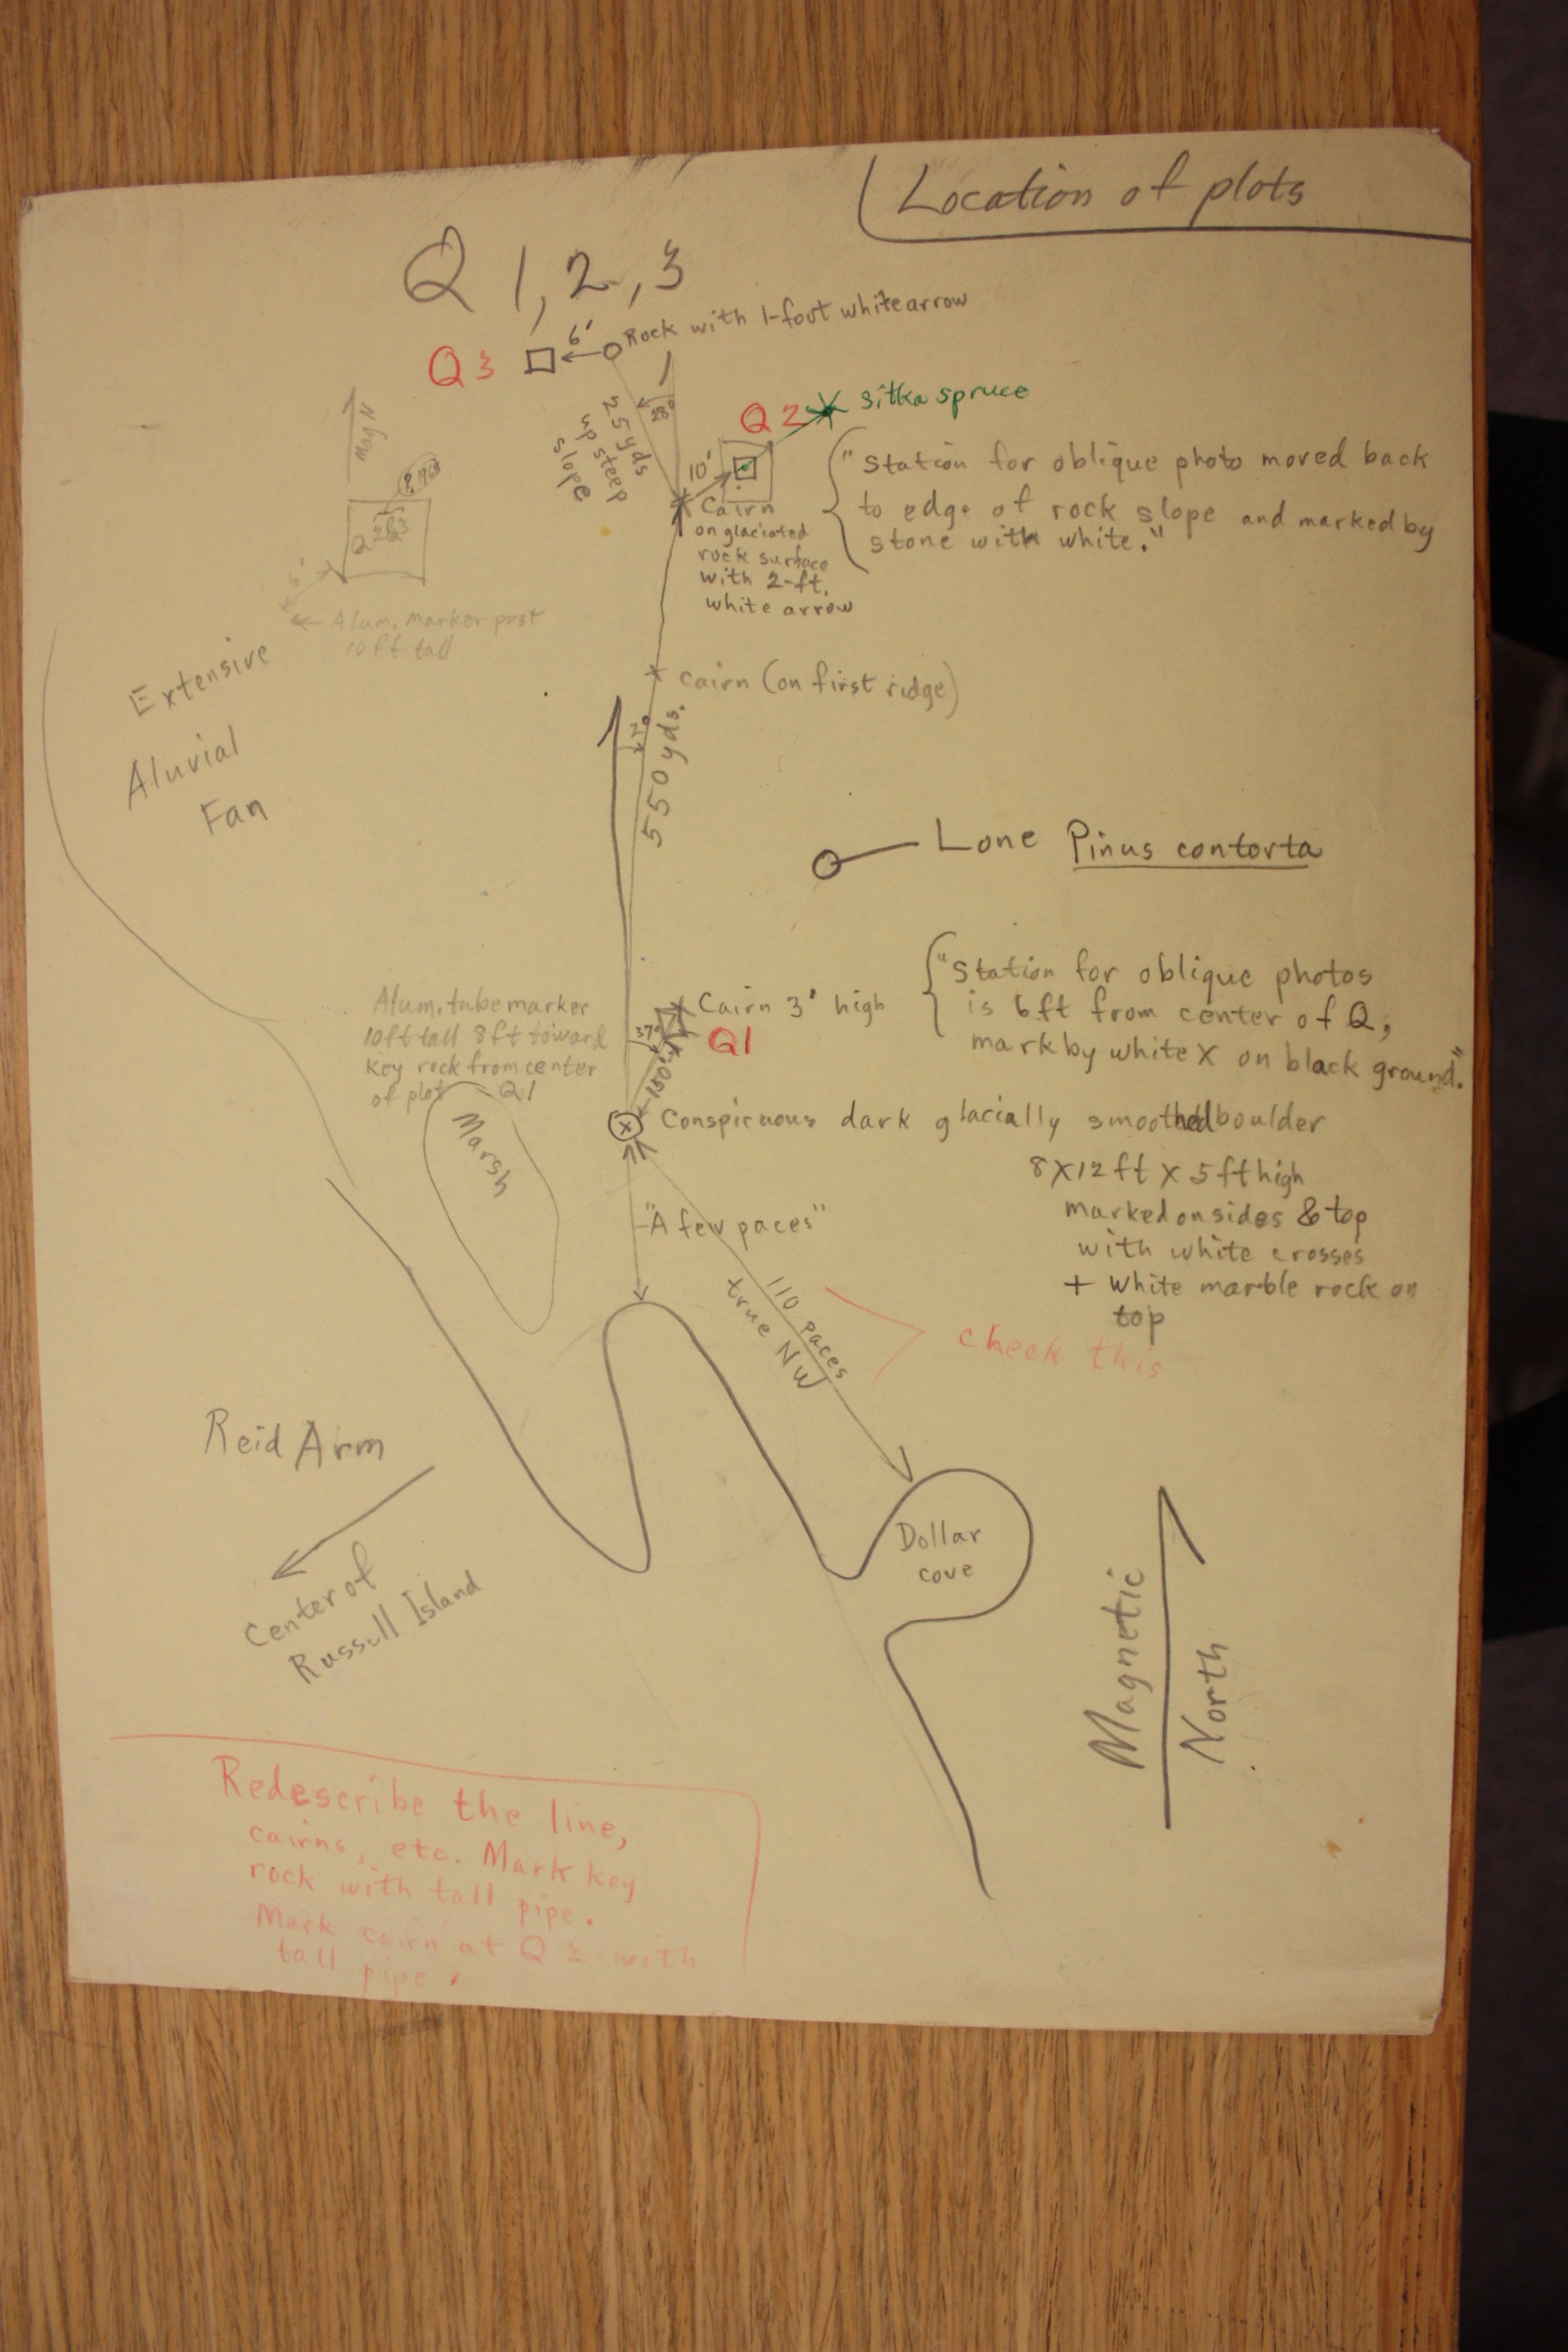 Location of plots
Q 1, 2, 3
Rock with 1-foot white arrow
6'
Q3
28°
25 yds
up steep
slope
Q2
sitka spruce
10'
Mag N
"Station for oblique photo moved back
to edge of rock slope and marked by
stone with white."
Cairn
on glaciated
rock surface
with 2-ft.
white arrow
6'
Alum. Marker post
10 ft tall
Extensive
Aluvial
Fan
cairn (on first ridge)
550 yds.
Lone Pinus contorta
Alum. tube marker
10ft tall 8ft toward
key rock from center
of plot Q1
Cairn 3' high
37°
Q1
150'
"Station for oblique photos
is 6ft from center of Q,
mark by white X on black ground."
Marsh
X
Conspicuous dark glacially smoothed boulder
8X12 ft X 5 ft high
marked on sides & top
with white crosses
+ white marble rock on
top
"A few paces"
110 paces
true NW
check this
Reid Arm
Center of
Russell Island
Dollar
cove
Magnetic
North
Redescribe the line,
cairns, etc. Mark key
rock with tall pipe.
Mark cairn at Q 2 with
tall pipe.